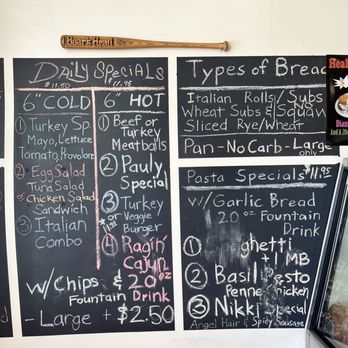 Bear's Head
Daily Specials
$11.50
11.95
6" Cold
① Turkey Sp.
Mayo, Lettuce
Tomato, Provolone
② Egg Salad
Tuna Salad
or Chicken Salad
Sandwich
③ Italian
Combo
6" Hot
① Beef or
Turkey
Meatballs
② Pauly
Special
③ Turkey
or Veggie
Burger
④ Ragin'
Cajun
w/Chips & 20 oz
Fountain Drink
- Large + $2.50
Types of Bread
Italian Rolls/Subs
Wheat Subs & Squaw
Sliced Rye/Wheat
Pan - No Carb - Large
only
Pasta Specials $11.95
w/ Garlic Bread
20 oz Fountain
Drink
①
+ 1 MB
② Basil Pesto
Penne Chicken
③ Nikki Special
Angel Hair & Spicy Sausage